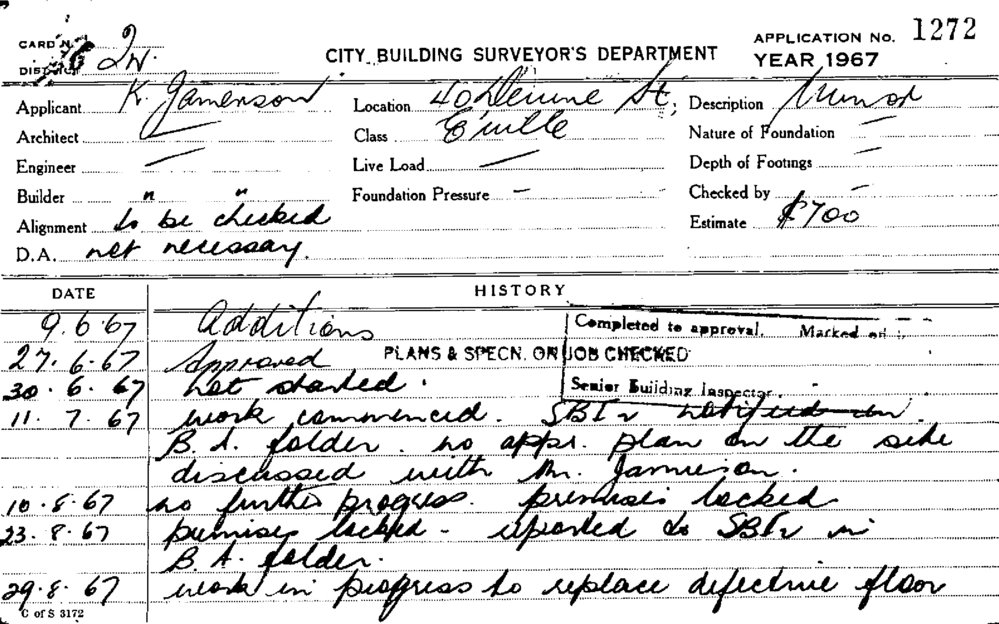 CARD No.
2W.
DISTRICT
CITY BUILDING SURVEYOR'S DEPARTMENT
APPLICATION No. 1272
YEAR 1967
Applicant K. Jamerson
Location 40 Derwent St,
Description Minor
Architect —
Class
Nature of Foundation —
Engineer —
Live Load —
Depth of Footings —
Builder " "
Foundation Pressure —
Checked by —
Alignment to be checked
Estimate $700
D.A. not necessary.
DATE HISTORY
9.6.67 Additions
Completed to approval. Marked on
27.6.67 Approved PLANS & SPECN. ON JOB CHECKED
30.6.67 not started.
Senior Building Inspector
11.7.67 work commenced. SBIr notified in
B.A. folder. no appr. plan on the site
discussed with Mr. Jamieson.
10.8.67 no further progress. premises locked
23.8.67 premises locked - reported to SBIr in
B.A. folder.
29.8.67 work in progress to replace defective floor
C of S 3172